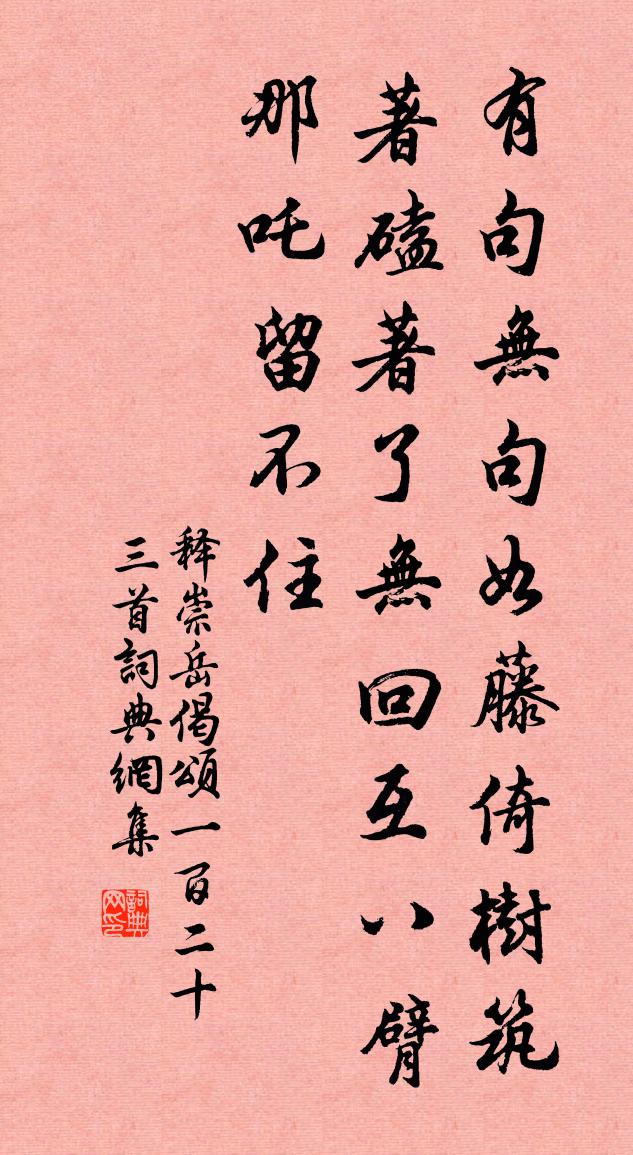 有句無句如藤倚樹筑
著磕著了無回互八臂
那吒留不住
释崇岳偈頌一百二十
三首詞典網集
詞典网印